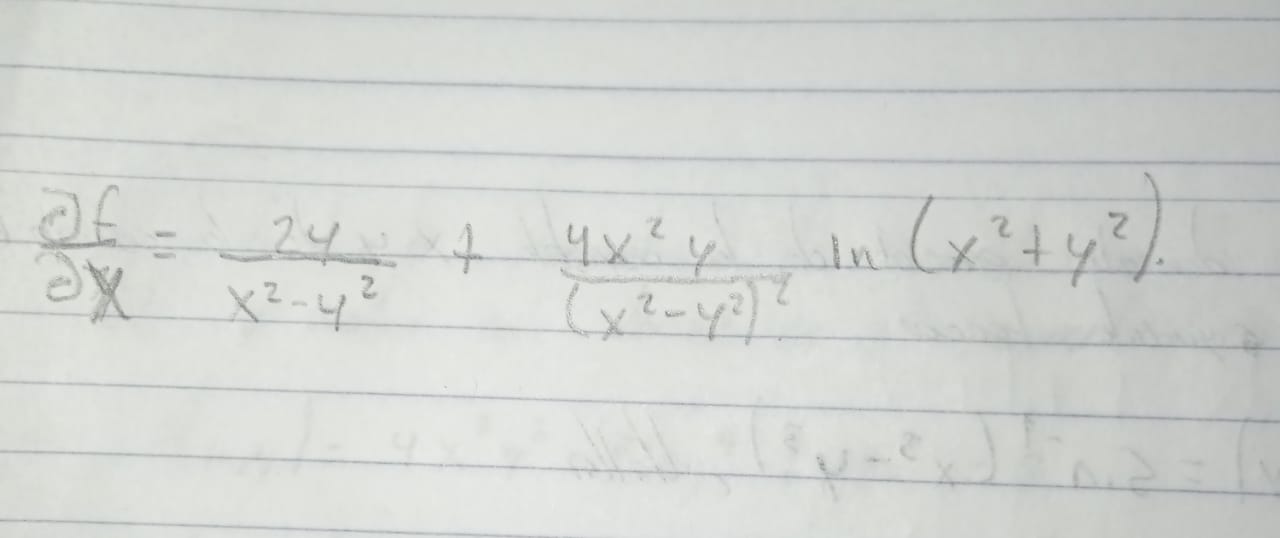 ∂f/∂x = 2y/(x²-y²) + 4x²y/(x²-y²)² ln (x²+y²).